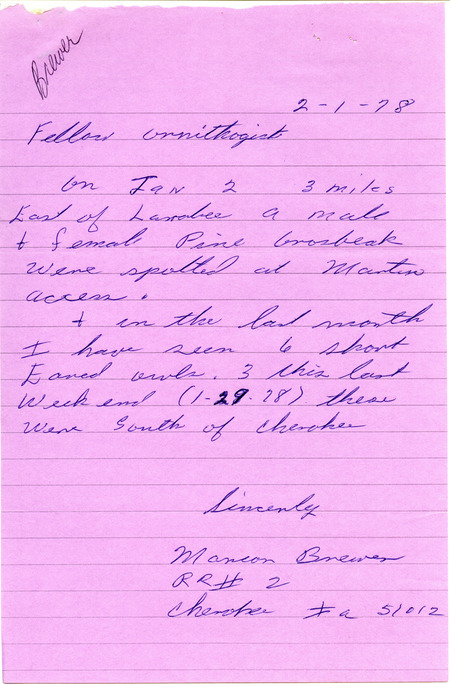 Brewer
2-1-78
Fellow ornithogist
On Jan 2 3 miles
East of Larabee a male
+ female Pine Grosbeak
were spotted at Martin
access.
+ in the last month
I have seen 6 short
Eared owls. 3 this last
Weekend (1-29-78) these
were South of Cherokee
Sincerely
Marion Brewer
RR# 2
Cherokee Ia 51012